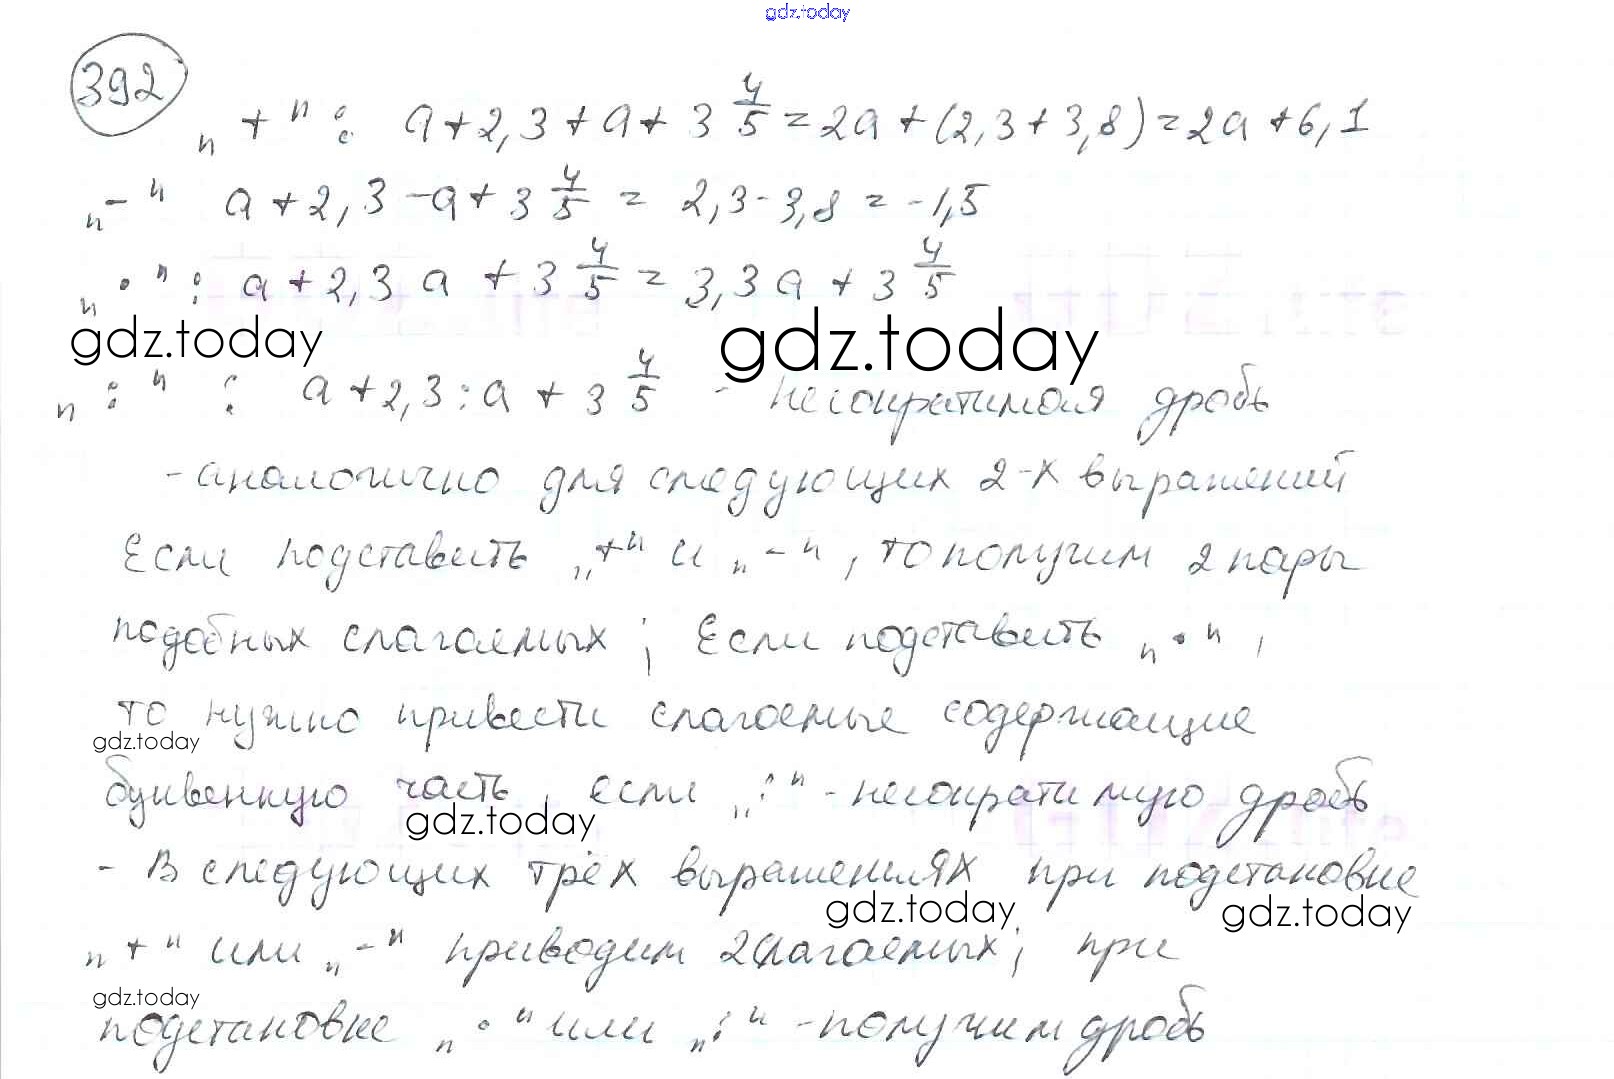 gdz.today
392
„+“: a+2,3+a+3 4/5=2a+(2,3+3,8)=2a+6,1
„-“ a+2,3-a+3 4/5 = 2,3-3,8=-1,5
„·“: a+2,3a+3 4/5=3,3a+3 4/5
gdz.today gdz.today
„:“: a+2,3:a+3 4/5 - несократимая дробь
-аналогично для следующих 2-х выражений
Если подставить „+“ и „-“, то получим 2 пары
подобных слагаемых; Если подставить „·“,
то нужно привести слагаемые содержащие
gdz.today
буквенную часть, если „:“-несократимую дробь
gdz.today
- В следующих трёх выражениях при подстановке
gdz.today gdz.today
„+“ или „-“ приводим 2 слагаемых; при
gdz.today
подстановке „·“ или „:“ -получим дробь